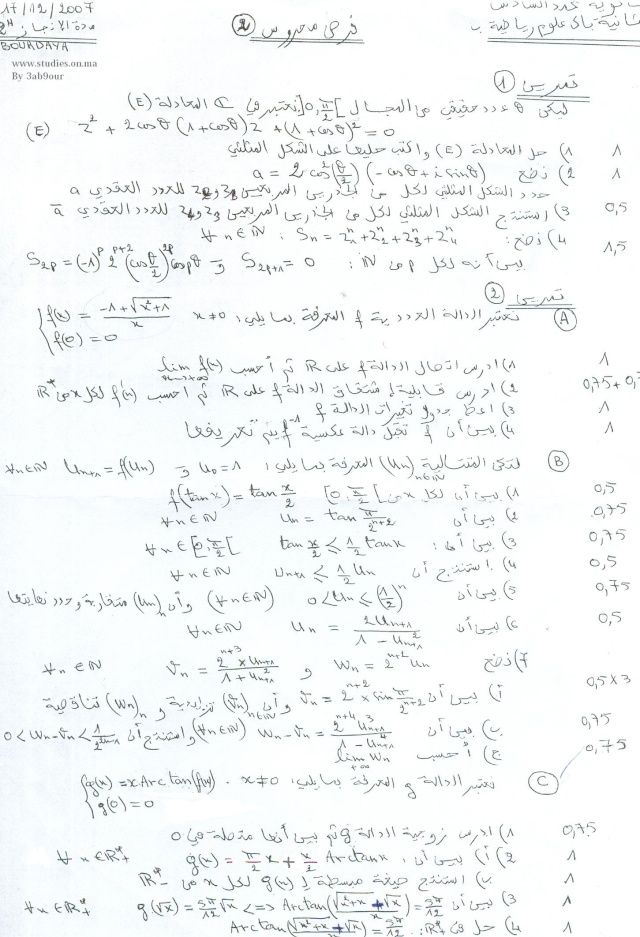 17/12/2007
مدة الإنجاز 2H
BOURDAYA
www.studies.on.ma
By 3ab9our
فرض محروس 2
ثانية باك علوم رياضية ب
تمرين 1
ليكن θ عدد حقيقي من المجال ]0,π/2[ نعتبر في C المعادلة (E)
(E) z² + 2cosθ(1+cosθ)z + (1+cosθ)² = 0
1) حل المعادلة (E) واكتب حليها على الشكل المثلثي 1
2) نضع a = 2cos²(θ/2)(-cosθ + i sinθ) 1
حدد الشكل المثلثي لكل من الجذرين المربعين z₁ و z₂ للعدد العقدي a
3) استنتج الشكل المثلثي لكل من الجذرين المربعين z₃ و z₄ للعدد العقدي ā 0,5
4) نضع: ∀n∈IN : Sₙ = z₁ⁿ+z₂ⁿ+z₃ⁿ+z₄ⁿ 1,5
بين أنه لكل p من IN : S₂ₚ₊₁ = 0 و S₂ₚ = (-1)ᵖ 2ᵖ⁺² (cos θ/2)²ᵖ cos pθ
تمرين 2
A نعتبر الدالة العددية f المعرفة بما يلي: { f(x) = (-1+√(x²+1))/x x≠0
f(0) = 0
1) ادرس اتصال الدالة f على IR ثم أحسب lim f(x) x→+∞ 1
2) ادرس قابلية اشتقاق الدالة f على IR ثم أحسب f'(x) لكل x من IR* 0,75+0,7
3) اعط جدول تغيرات الدالة f 1
4) بين أن f تقبل دالة عكسية f⁻¹ يتم تعريفها 1
B لتكن المتتالية (Uₙ)n∈IN المعرفة بما يلي: U₀=1 و Uₙ₊₁ = f(Uₙ) ∀n∈IN
1) بين أن لكل x من [0,π/2[ f(tan x) = tan x/2 0,5
2) بين أن Uₙ = tan π/2ⁿ⁺² ∀n∈IN 0,75
3) بين أن: tan x/2 ≤ 1/2 tan x ∀x∈[0,π/2[ 0,75
4) استنتج أن Uₙ₊₁ ≤ 1/2 Uₙ ∀n∈IN 0,5
5) بين أن 0<Uₙ≤(1/2)ⁿ (∀n∈IN) وأن (Uₙ)ₙ متقاربة وحدد نهايتها 0,75
6) بين أن Uₙ = 2Uₙ₊₁/(1-U²ₙ₊₁) ∀n∈IN 0,5
7) نضع Wₙ = 2ⁿ⁺²Uₙ و Vₙ = 2ⁿ⁺³×Uₙ₊₁/(1+U²ₙ₊₁) ∀n∈IN
أ) بين أن Vₙ = 2ⁿ⁺²×sin π/2ⁿ⁺² وأن (Vₙ)n∈IN تزايدية و (Wₙ)ₙ تناقصية 0,5×3
ب) بين أن Wₙ-Vₙ = 2ⁿ⁺⁴U³ₙ₊₁/(1-U⁴ₙ₊₁) (∀n∈IN) واستنتج أن 0<Wₙ-Vₙ< 0,75
ج) أحسب lim Wₙ +∞ 0,75
C نعتبر الدالة g المعرفة بما يلي: { g(x) = xArctan(f(x)) . x≠0
g(0) = 0
1) ادرس زوجية الدالة g ثم بين أنها متصلة في 0 0,75
2) أ) بين أن: g(x) = π/2 x + x/2 Arctan x ∀x∈IR*₊ 1
ب) استنتج صيغة مبسطة ل g(x) لكل x من IR*₋ 1
3) بين أن g(√x) = 5π/12 √x <=> Arctan(√(x²+x)+√x / x) = 5π/12 ∀x∈IR*₊ 1
4) حل في IR*₊: Arctan(√(x²+x)+√x / x) = 5π/12 1